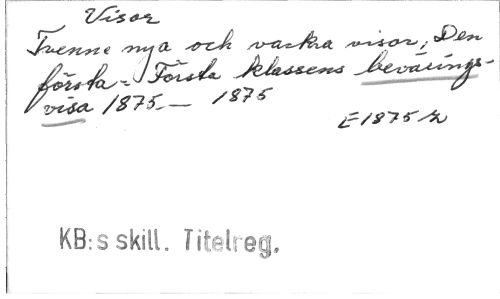 Visor
Trenne nya och vackra visor; Den
första - Första klassens bevärings-
visa 1875.— 1875
E1875 r
KB:s skill. Titelreg.